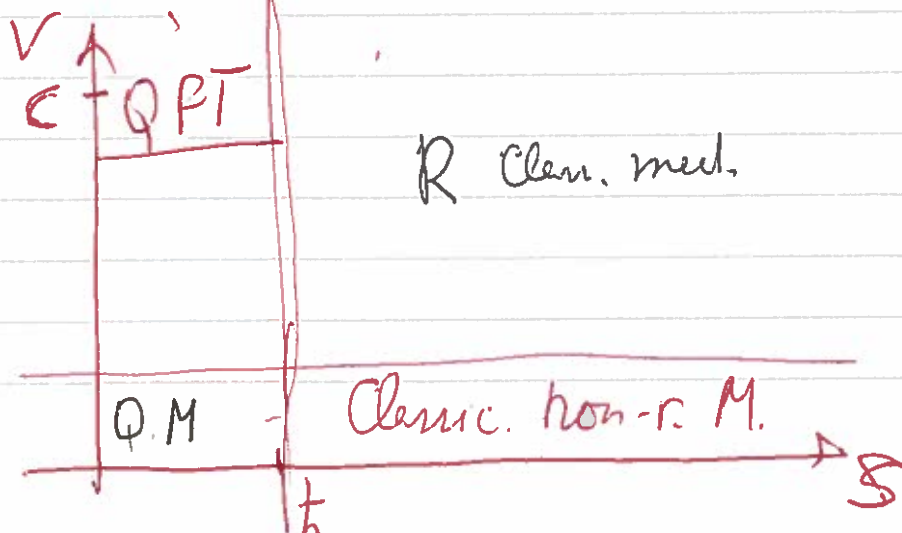 V
c QFT
R Class. mech.
Q.M Classic. non-r. M.
ħ S